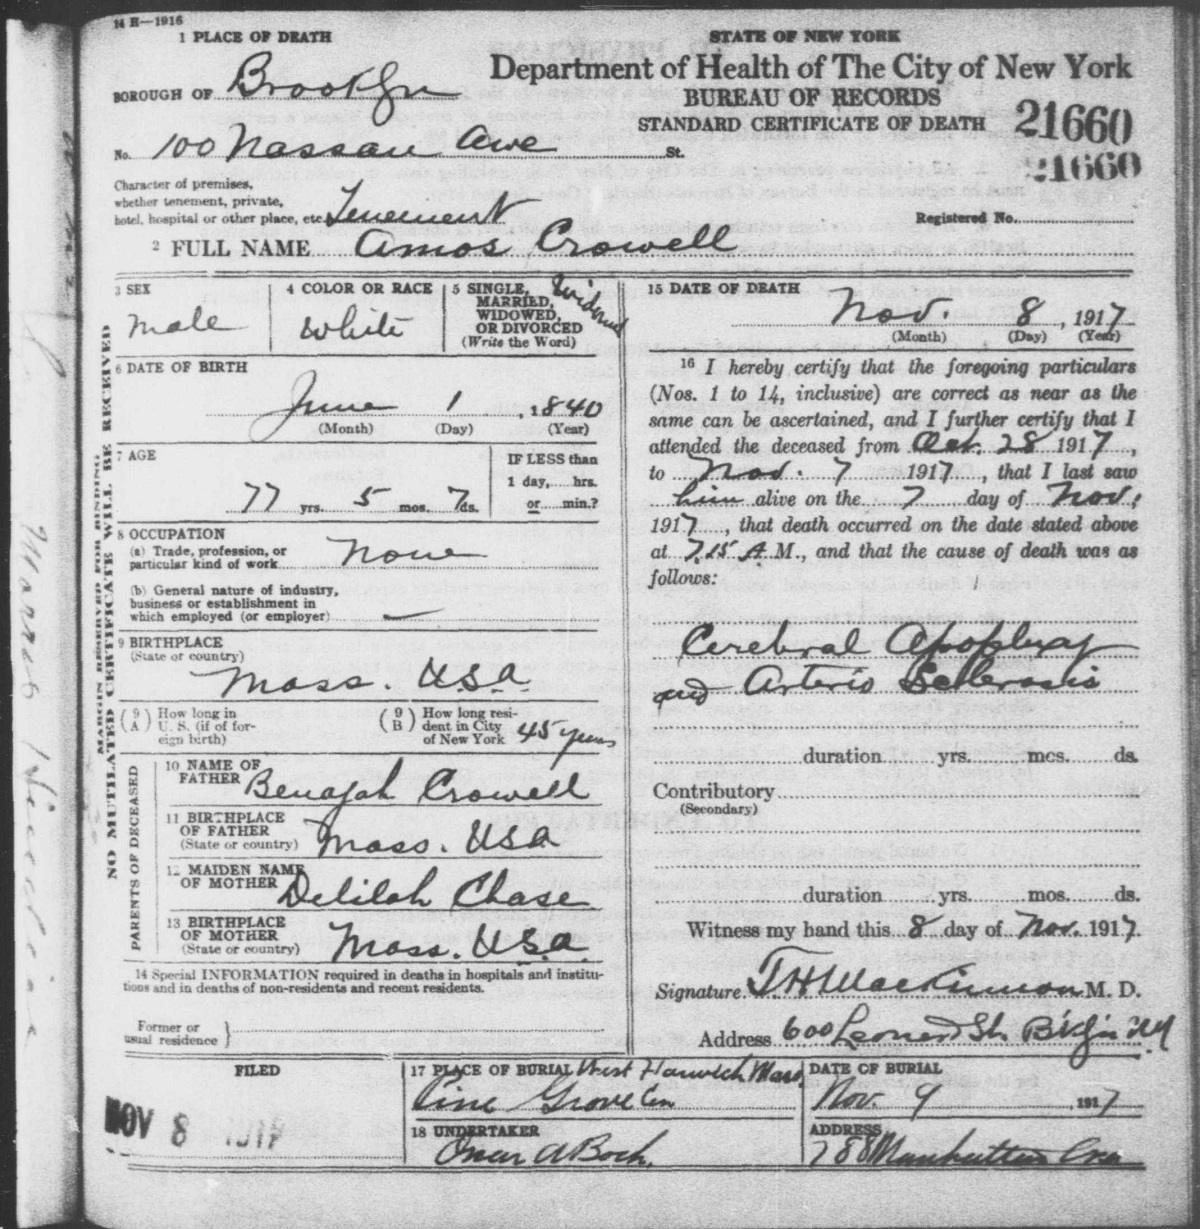 14 H—1916
1 PLACE OF DEATH
BOROUGH OF Brooklyn
No. 100 Nassau Ave St.
Character of premises,
whether tenement, private,
hotel, hospital or other place, etc. Tenement
2 FULL NAME Amos Crowell
STATE OF NEW YORK
Department of Health of The City of New York
BUREAU OF RECORDS
STANDARD CERTIFICATE OF DEATH
21660
21660
Registered No.
3 SEX
Male
4 COLOR OR RACE
White
5 SINGLE,
MARRIED,
WIDOWED,
OR DIVORCED
(Write the Word)
Widowed
6 DATE OF BIRTH
June 1, 1840
(Month) (Day) (Year)
7 AGE
77 yrs. 5 mos. 7 ds.
IF LESS than
1 day, hrs.
or min.?
8 OCCUPATION
(a) Trade, profession, or
particular kind of work None
(b) General nature of industry,
business or establishment in
which employed (or employer) —
9 BIRTHPLACE
(State or country)
Mass. U.S.A.
(9 A) How long in
U. S. (if of for-
eign birth)
(9 B) How long resi-
dent in City
of New York 45 years
PARENTS OF DECEASED
10 NAME OF
FATHER Benajah Crowell
11 BIRTHPLACE
OF FATHER
(State or country) Mass. USA
12 MAIDEN NAME
OF MOTHER Delilah Chase
13 BIRTHPLACE
OF MOTHER
(State or country) Mass. U.S.A.
14 Special INFORMATION required in deaths in hospitals and institu-
tions and in deaths of non-residents and recent residents.
Former or
usual residence
15 DATE OF DEATH
Nov. 8, 1917
(Month) (Day) (Year)
16 I hereby certify that the foregoing particulars
(Nos. 1 to 14, inclusive) are correct as near as the
same can be ascertained, and I further certify that I
attended the deceased from Oct. 28 1917,
to Nov. 7 1917, that I last saw
him alive on the 7 day of Nov.
1917, that death occurred on the date stated above
at 7.15 A.M., and that the cause of death was as
follows:
Cerebral Apoplexy
and Arterio Sclerosis
duration yrs. mos. ds.
Contributory
(Secondary)
duration yrs. mos. ds.
Witness my hand this 8 day of Nov. 1917.
Signature. T H MacKinnon M. D.
Address 600 Leonard St. Bklyn NY
FILED
NOV 8 1917
17 PLACE OF BURIAL West Harwich Mass.
Pine Grove Cem
DATE OF BURIAL
Nov. 9, 1917
18 UNDERTAKER
A Boch.
ADDRESS
788 Manhattan Ave
MARGIN RESERVED FOR BINDING
NO MUTILATED CERTIFICATE WILL BE RECEIVED